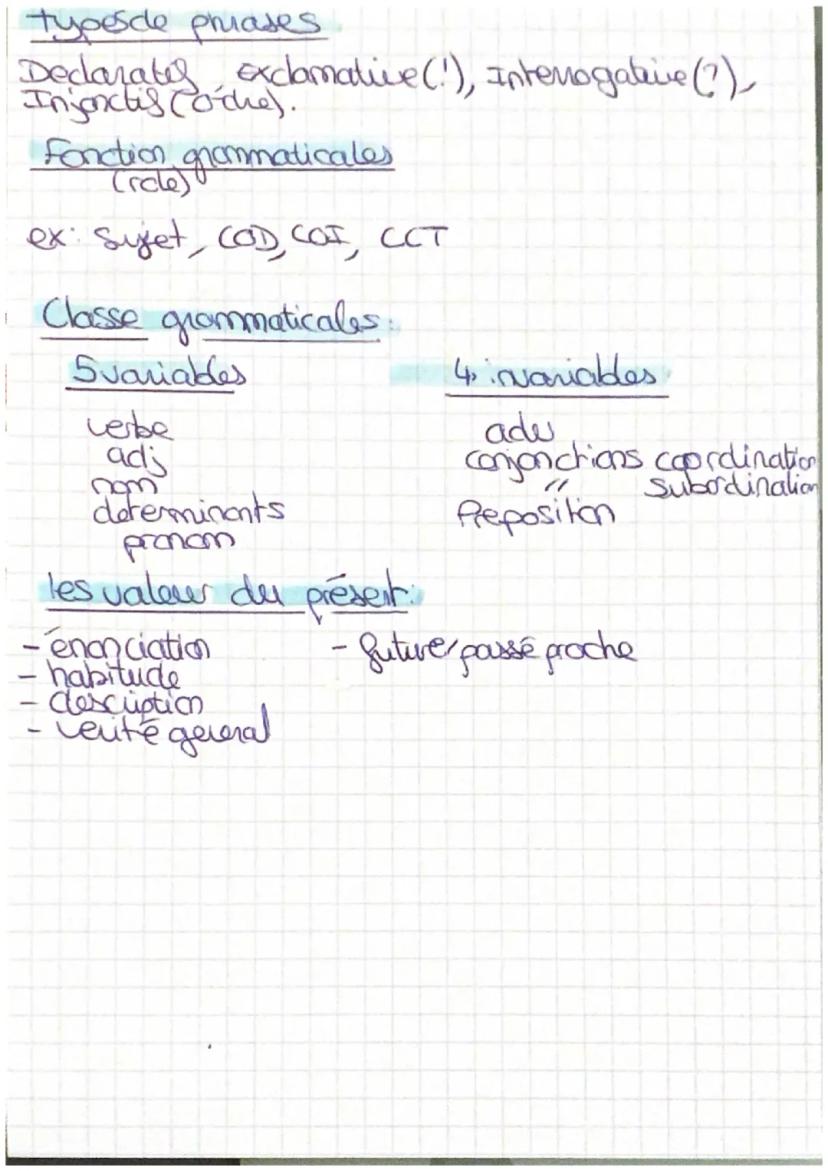 types de phrases
Declaratif, exclamative (!), Interrogative (?),
Injonctif (ordre).
Fonction grammaticales
(role)
ex: Sujet, COD, COI, CCT
Classe grammaticales:
5 variables
4 invariables
verbe
adj
nom
determinants
pronom
adv
conjonctions coordination
" subordination
Preposition
les valeur du présent:
- énonciation
- habitude
- description
- verité general
- future/passé proche